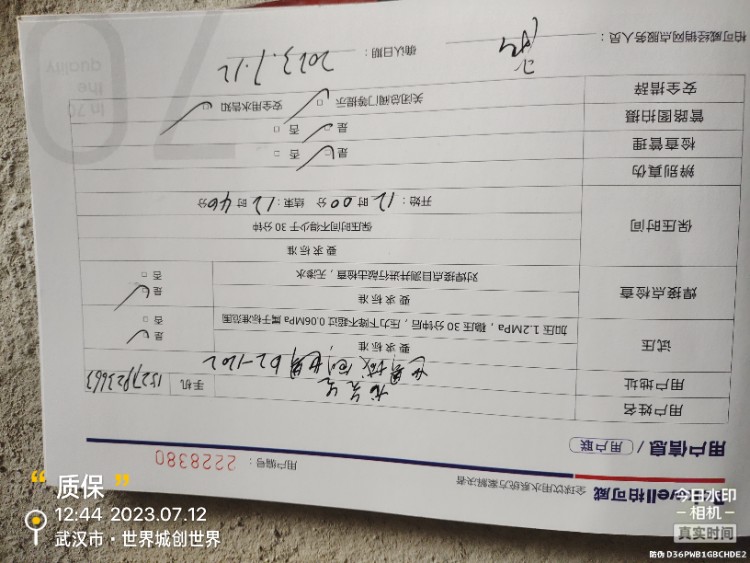 柏可威
全球饮用水系统方案解决者
用户编号：2228380
用户信息 / 用户联
用户姓名
用户地址 世界城创世界D2-1202 手机
试压
要求标准
加压1.2MPa，稳压，30分钟后，压力下降不超过0.06MPa属于标准范围
是
否
焊接点检查
要求标准
对焊接点目测并进行敲击检查，无渗水
是
否
保压时间
要求标准
保压时间不得少于30分钟
开始：12时00分 结束：12时40分
辨别真伪
检查管理 是 否
管路图拍摄 是 否
安全措辞 关闭总阀门等提示 安全用水告知
柏可威经销网点服务人员：
确认日期：2023.7.12
70
in 70
the
quality
“质保”
12:44 2023.07.12
武汉市·世界城创世界
今日水印
相机
真实时间
防伪 D36PWB1GBCHDE2